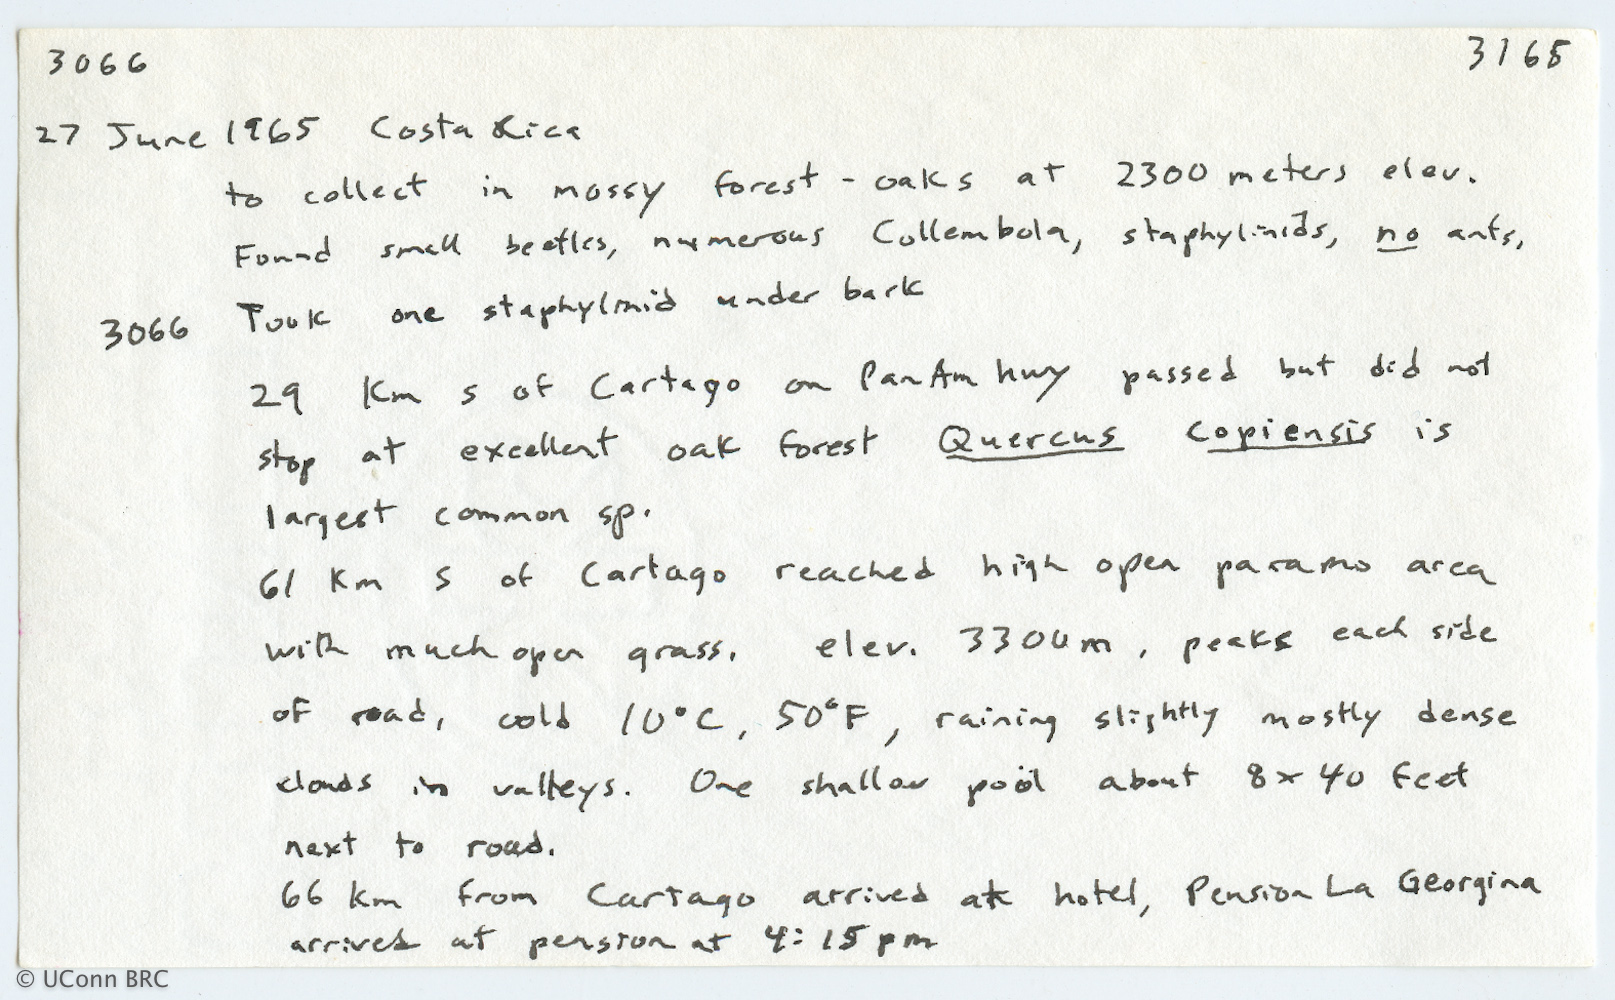 3066 3165
27 June 1965 Costa Rica
to collect in mossy forest - oaks at 2300 meters elev.
Found small beetles, numerous Collembola, staphylinids, no ants,
3066 Took one staphylinid under bark
29 Km S of Cartago on PanAm hwy passed but did not
stop at excellent oak forest Quercus copiensis is
largest common sp.
61 Km S of Cartago reached high open paramo area
with much open grass. elev. 3300m, peaks each side
of road, cold 10°C, 50°F, raining slightly mostly dense
clouds in valleys. One shallow pool about 8x40 feet
next to road.
66 Km from Cartago arrived at hotel, Pension La Georgina
arrived at pension at 4:15 pm
© UConn BRC